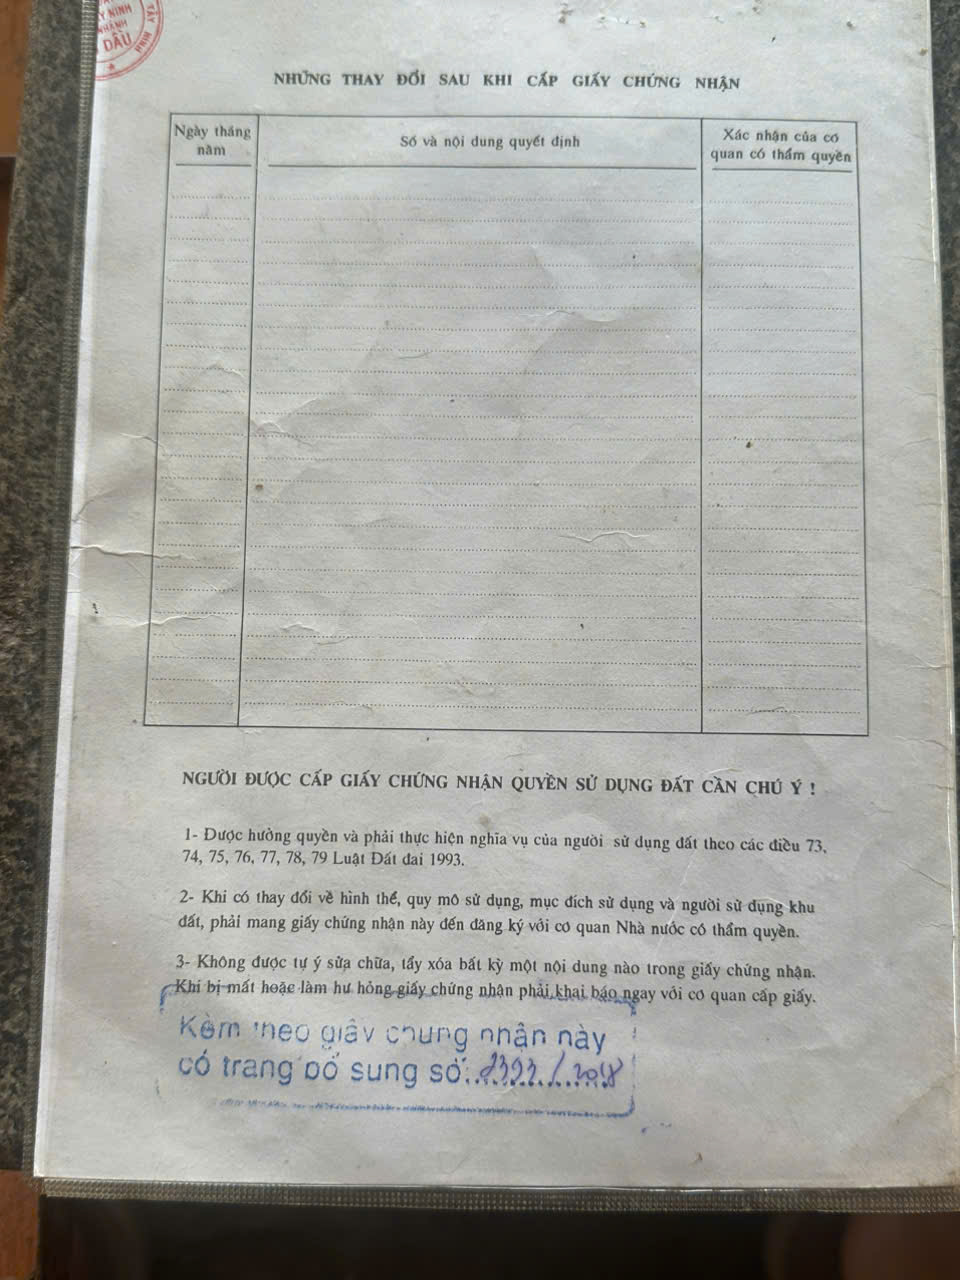 Y NINH
NHÁNH
DẦU
TÂY
NINH
NHỮNG THAY ĐỔI SAU KHI CẤP GIẤY CHỨNG NHẬN
Ngày tháng
năm
Số và nội dung quyết định
Xác nhận của cơ
quan có thẩm quyền
NGƯỜI ĐƯỢC CẤP GIẤY CHỨNG NHẬN QUYỀN SỬ DỤNG ĐẤT CẦN CHÚ Ý !
1- Được hưởng quyền và phải thực hiện nghĩa vụ của người sử dụng đất theo các điều 73,
74, 75, 76, 77, 78, 79 Luật Đất đai 1993.
2- Khi có thay đổi về hình thể, quy mô sử dụng, mục đích sử dụng và người sử dụng khu
đất, phải mang giấy chứng nhận này đến đăng ký với cơ quan Nhà nước có thẩm quyền.
3- Không được tự ý sửa chữa, tẩy xóa bất kỳ một nội dung nào trong giấy chứng nhận.
Khi bị mất hoặc làm hư hỏng giấy chứng nhận phải khai báo ngay với cơ quan cấp giấy.
Kèm theo giấy chứng nhận này
có trang bổ sung số: /2018